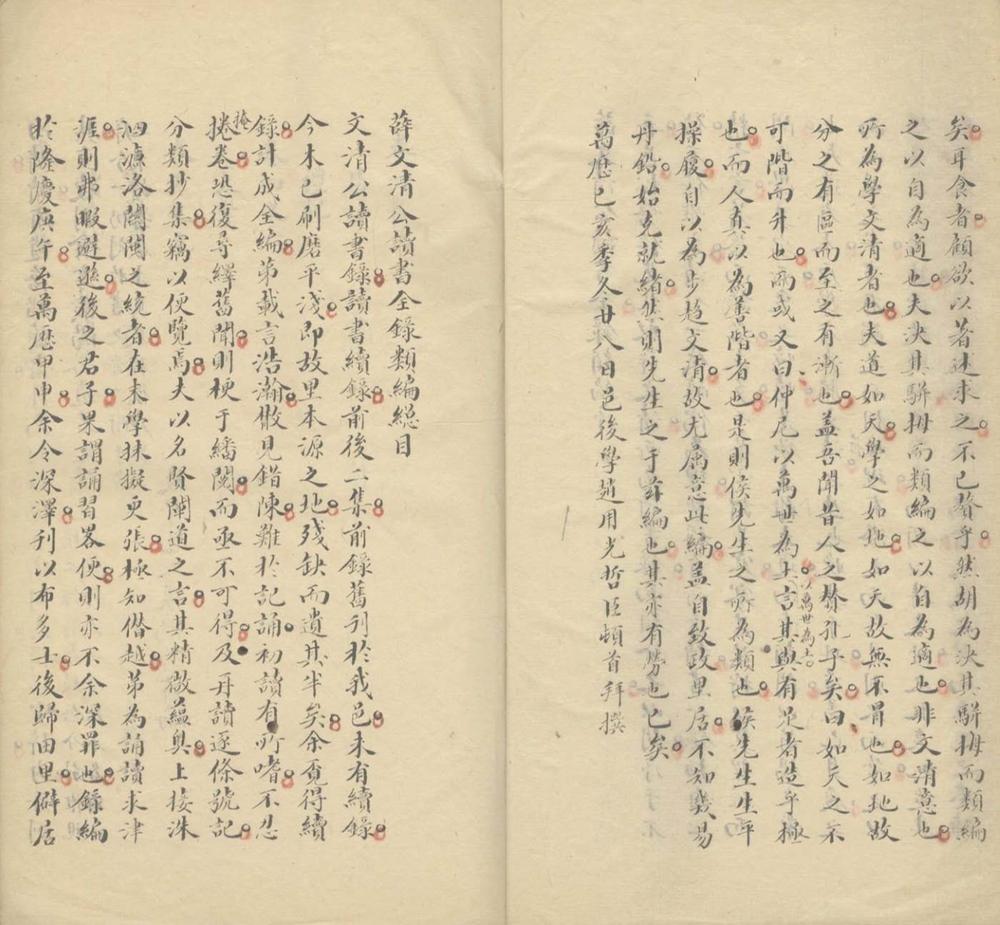 矣耳食者顧欲以著述求之不已贅乎然胡為決其駢拇而類編
之以自為適也夫決其駢拇而類編之以自為適也非文清意也
所為學文清者也夫道如天學之如地如天故無不冐也如地故
分之有區而至之有漸也蓋吾聞昔人之贊孔子矣曰如天之不
可階而升也而或又曰仲尼以萬世為土言其與有足者造乎極
以萬世為土
也而人真以為善階者也是則侯先生之所為類也侯先生生平
操履自以為步趨文清故尤屬意此編蓋自致政里居不知幾易
丹鉛始克就緒然則先生之于茲編也其亦有勞也已矣
萬曆己亥季冬廿八日邑後學趙用光哲臣頓首拜撰
薛文清公讀書全錄類編總目
文清公讀書錄讀書續錄前後二集前錄舊刊於我邑未有續錄
今木已刷磨平淺即故里本源之地殘缺而遺其半矣余覓得續
錄計成全編第載言浩瀚散見錯陳難於記誦初讀有所嗜不忍
掩
捲卷恐復尋繹舊聞則梗于繙閱而亟不可得及再讀逐條號記
分類抄集竊以便覽焉夫以名賢闡道之言其精微蘊奧上接洙
泗濂洛關閩之統者在末學抹擬更張極知僭越第為誦讀求津
涯則弗暇避遜後之君子果謂誦習畧便則亦不余深罪也錄編
於隆慶庚午至萬曆甲申余令深澤刊以布多士後歸田里僻居